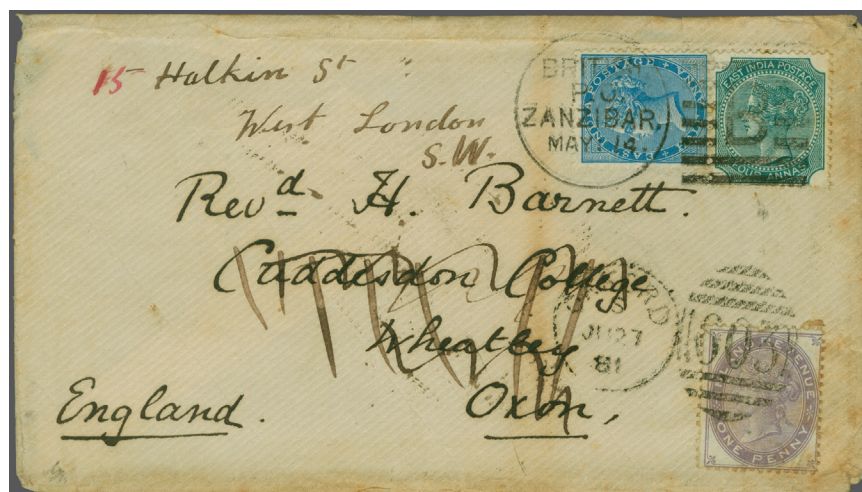 15 Halkin St
West London
S.W.
BRITISH
P.O.
ZANZIBAR.
MAY 14
POSTAGE
EAST INDIA POSTAGE
FOUR ANNAS
Revd. H. Barnett.
Cuddesdon College
Wheatley
Oxon,
England.
JU 27
81
603
AND REVENUE
ONE PENNY